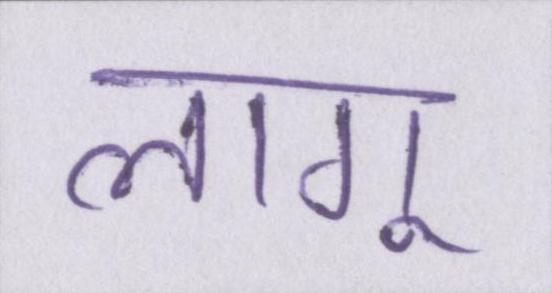 लागू